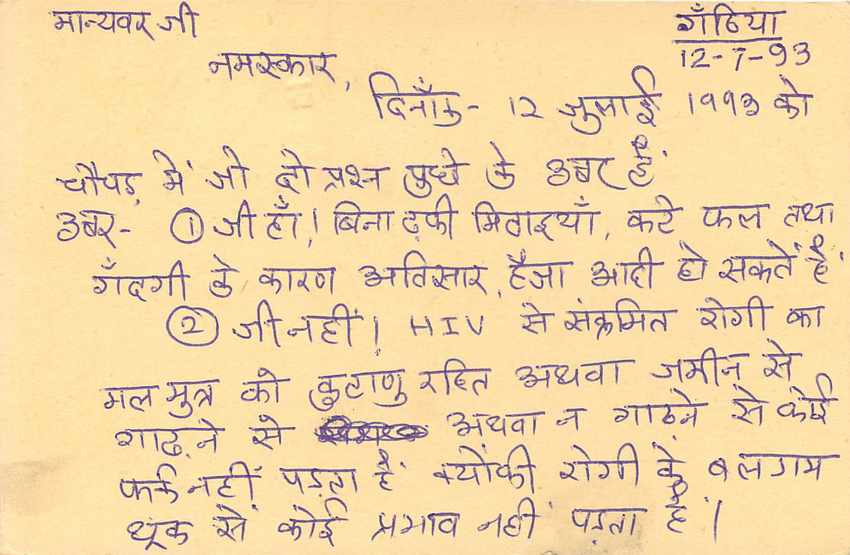 मान्यवर जी
गँठिया
12-7-93
नमस्कार,
दिनाँक - १२ जुलाई १९९३ को
चौपड़ में जो दो प्रश्न पुछे के उत्तर हैं
उत्तर - ① जी हाँ! बिना ढ़की मिठाइयाँ, कटे फल तथा
गँदगी के कारण अतिसार, हैजा आदी हो सकतें हैं
② जी नहीं। HIV से संक्रमित रोगी का
मल मुत्र को कुटाणु रहित अथवा जमीन से
गाढ़ने से अथवा न गाढ़ने से कोई
फर्क नहीं पड़ता हैं क्योंकी रोगी के बलगम
थूक से कोई प्रभाव नहीं पड़ता हैं।